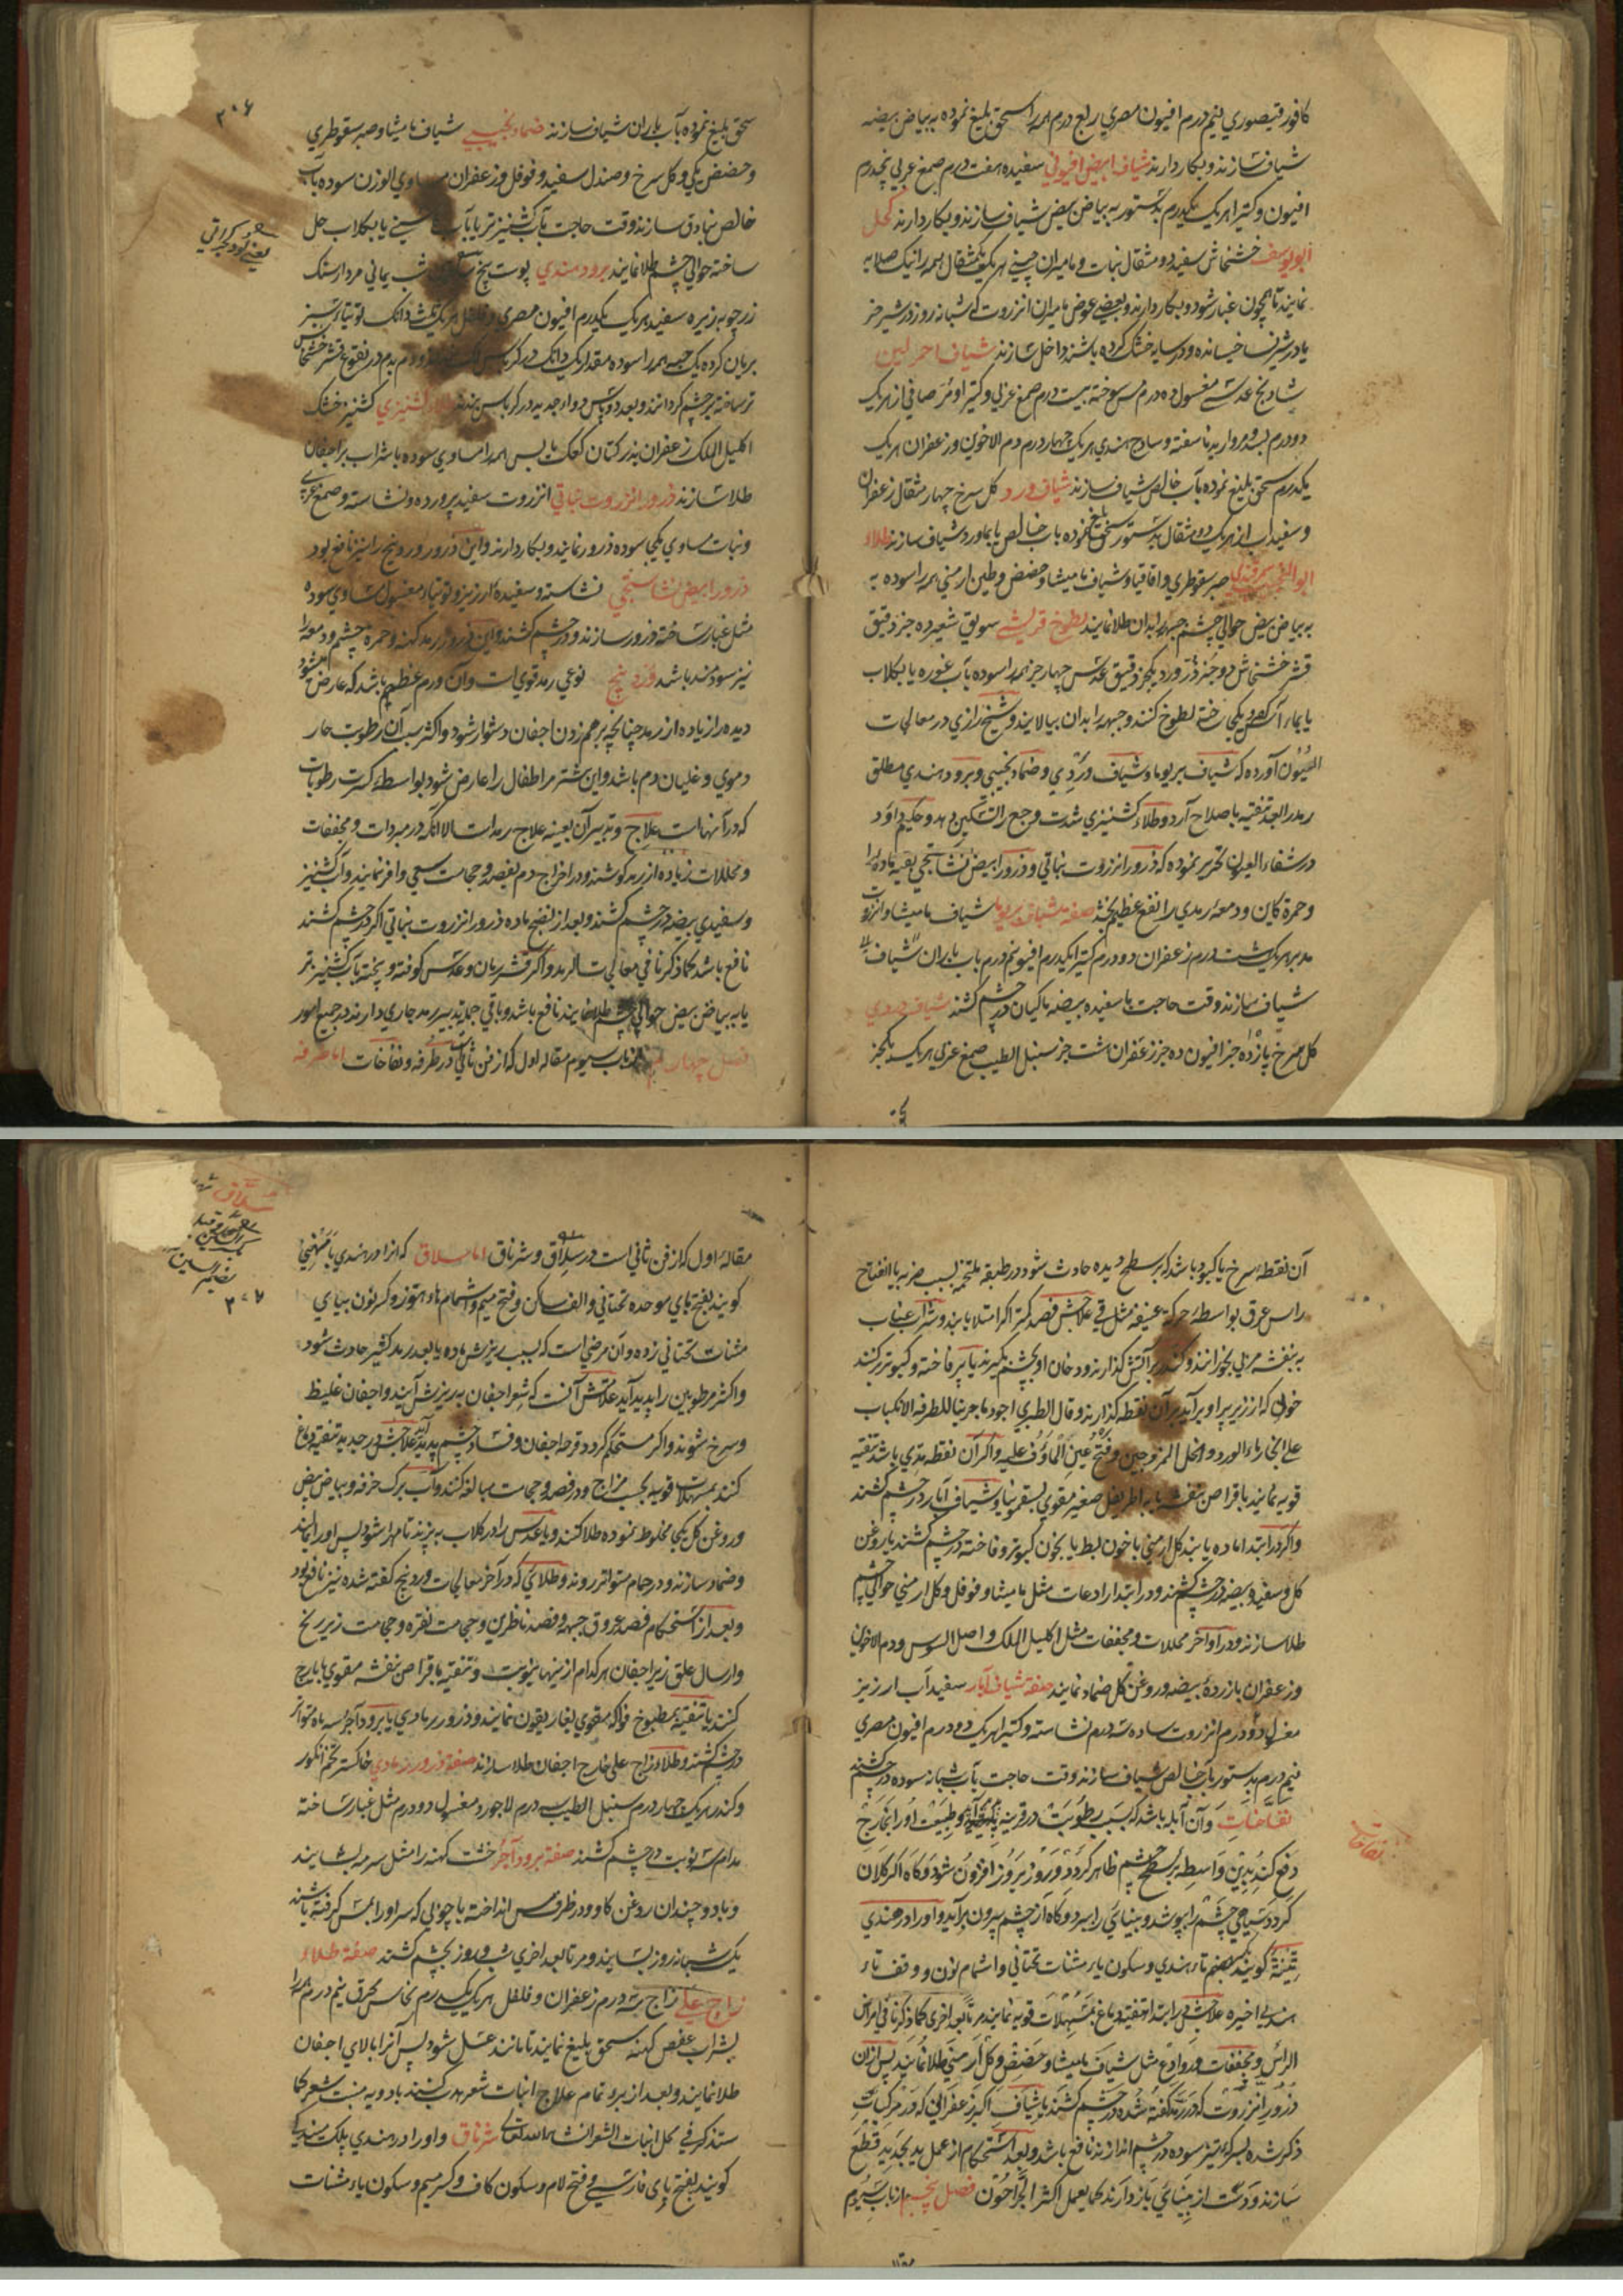 کافور قیصوری نیم درم افیون مصری ربع درم همه را سحق بلیغ نموده به بیاض بیضه
شیاف سازند و بکار دارند شیاف ابیض افیونی سفیده هفت درم صمغ عربی پنجدرم
افیون و کتیرا هریک یکدرم بدستور به بیاض بیض شیاف سازند و بکار دارند کحل
ابو یوسف خشخاش سفید دو مثقال نبات و مامیران چینی هریک یکمثقال همه را نیک صلایه
نمایند تا همچون غبار شود و بکار دارند و بعضی عوض مامیران انزروت که شبانه روز در شیر خر
یا در شیر نسا خیسانده و در سایه خشک کرده باشند داخل سازند شیاف احمر لین
شادنج عدسی مغسول ده درم مس سوخته بیست درم صمغ عربی و کتیرا و مر صافی از هریک
دو درم بسد و مروارید ناسفته و ساذج هندی هریک چهار درم دم الاخوین و زعفران هریک
یکدرم سحق بلیغ نموده بآب خالص شیاف سازند شیاف ورد کل سرخ چهار مثقال زعفران
و سفیداب از هریک دو مثقال بدستور سحق بلیغ نموده باب خالص یا بماورد شیاف سازند طلاء
صبر سقوطری و اقاقیا و شیاف مامیثا و حضض و طین ارمنی همه را سوده به
به بیاض بیض حوالی چشم و جبهه را بدان طلا نمایند لطوخ قریشی سویق شعیر ده جزو دقیق
قشر خشخاش دو جزو ذرورد یکجزو دقیق عدس چهار جزو همه را سوده بآب غوره یا بکلاب
یا بماء آس یکجا ساخته لطوخ کنند و جبهه را بدان بیالایند و شیخ رازی در معالجات
العیون آورده که شیاف بریوما و شیاف وردی و ضماد نجیبی و برود هندی مطلق
رمد را بعد تنقیه باصلاح آرد و طلاء کشنیزی شدت وجع را تسکین دهد و حکیم داود
در شفاء العیون تحریر نموده که ذرور انزروت نباتی و ذرور ابیض نشاستجی بقیه ماده را
و حمرة کاین و دمعه رمدی را نفع عظیم بخشد صفه شیاف بریوما شیاف مامیثا و انزروت
مدبر هریک هشت درم زعفران دو درم کتیرا یکدرم افیون نیم درم باب باران شیاف
شیاف سازند وقت حاجت با سفیده بیضه ماکیان در چشم کشند شیاف وردی
کل سرخ پانزده جزو افیون ده جزو زعفران هشت جزو سنبل الطیب صمغ عربی هریک یکجزو
۳۰۶
سحق بلیغ نموده بآب باران شیاف سازند ضماد نجیبی شیاف مامیثا و صبر سقوطری
و حضض مکی و کل سرخ و صندل سفید و فوفل و زعفران مساوی الوزن سوده بآب
خالص بنادق سازند وقت حاجت بآب کشنیز تر یا بآب کاسنی یا بکلاب حل
ساخته حوالی چشم طلا نمایند برود هندی پوست بیخ شب یمانی مردار سنک
زرچوبه زیره سفید هریک یکدرم افیون مصری و فلفل هریک دانک توتیاء سبز
بریان کرده یک حبه همه را سوده مقدار یک دانک در کرباس
تر ساخته بر چشم کردانند و بعد دو پاس دواء جدید در کرباس بندند طلاء کشنیزی کشنیز خشک
اکلیل الملک زعفران بذر کتان کعک یابس همه را مساوی سوده باشراب بر اجفان
طلا سازند ذرور انزروت نباتی انزروت سفید پرورده و نشاسته و صمغ عربی
و نبات مساوی یکجا سوده ذرور نمایند و بکار دارند و این ذرور وردینج را نیز نافع بود
ذرور ابیض نشاستجی نشاسته و سفیده ارزیز و توتیاء مغسول مساوی سوده
مثل غبار ساخته ذرور سازند و در چشم کشند و این ذرور رمد کهنه و حمره چشم و دمعه را
نیز سودمند باشد وردینج نوعی رمد قوی است و آن ورم عظیم باشد که عارض میشود
دیده را زیاده از رمد چنانچه برهم زدن اجفان دشوار شود و اکثر سبب آن رطوبت حار
دموی و غلیان دم باشد و این بیشتر مر اطفال را عارض شود بواسطه کثرت رطوبات
که در آنهاست علاج و تدبیر آن بعینه علاج رمد است الا آنکه در مبردات و مجففات
و محللات زیاده از رمد کوشند و در اخراج دم بفصد و حجامت سعی وافر نمایند و آب کشنیز
و سفیدی بیضه در چشم کشند و بعد از نضج ماده ذرور انزروت نباتی اکر در چشم کشند
نافع باشد کما ذکرنا فی معالجات الرمد و اکر قشر رمان و عدس کوفته و پخته بآب کشنیز تر
یا به بیاض بیض حوالی چشم طلا نمایند نافع باشد و باقی جمله تدبیر رمد جاری دارند در جمیع امور
فصل چهارم از باب سیوم مقاله اول که از فن ثانی است در طرفه و نفاخات اما طرفه
آن نقطه سرخ یا کبود باشد که بر سطح دیده حادث شود در طبقه ملتحمه بسبب ضربه یا انفتاح
راس عرق بواسطه حرکة عنیفه مثل قی علاجش فصد کنند اکر امتلا یابند و شراب عناب
به بنفشه مربی بخورانند و کندر بر آتش کذارند و دخان او بچشم کیرند یا پر فاخته و کبوتر بر کنند
خونی که از زیر پر او برآید بر آن نقطه کذارند و قال الطبری اجود ما جربنا للطرفه الانکباب
علی بخار ماء الورد و الخل الممزوجین و فتح عین الماوف علیه و اکر آن نقطه متدی باشد تنقیه
قویه نمایند باقراص بنفشه یا به اطریفل صغیر مقوی بسقمونیا و شیاف آبار در چشم کشند
و اکر در ابتدا ماده یابند کل ارمنی باخون بط یا بخون کبوتر و فاخته در چشم کشند یا روغن
کل و سفیده بیضه در چشم کشند و در ابتدا رادعات مثل مامیثا و فوفل و کل ارمنی حوالی چشم
طلا سازند و در اواخر محللات و مجففات مثل اکلیل الملک و اصل السوس و دم الاخوین
و زعفران بازرده بیضه و روغن کل ضماد نمایند صفه شیاف آبار سفیداب ارزیز
مغسول دو درم انزروت ساده سه درم نشاسته و کتیرا هریک دو درم افیون مصری
نیم درم بدستور بآب خالص شیاف سازند وقت حاجت بآب شبانه سوده در چشم کشند
نفاخات و آن آبله باشد که بسبب رطوبت در قرنیه بهم رسد و طبیعت او را بخارج
دفع کند بدین واسطه بر سطح چشم ظاهر کردد و روز بروز افزون شود و کاه اکر کلان
کردد سیاهی چشم را بپوشد و بینائی را ببرد و کاه از چشم بیرون برآید و او را در هندی
کویند بضم تاء هندی و سکون یاء مثنات تحتانی و اشمام نون و وقف تاء
هندی اخیره علاجش در ابتدا تنقیه دماغ بمسهلات قویه نمایند مرة بعد اخری کما ذکرنا فی امراض
الراس و مجففات و روادع مثل شیاف مامیثا و حضض و کل ارمنی طلا نمایند پس از آن
ذرور انزروت که در رمد کفته شده در چشم کشند یا شیاف اکبر زعفرانی که در مرکبات
ذکر شده بسرکه تیز سوده در چشم اندازند نافع باشد و بعد استحکام از عمل ید بحدید قطع
سازند و دست از بینائی باز دارند کما یعمل اکثر الجراحون فصل پنجم از باب سیوم
نفاخات
۳۰۷
مقاله اول که از فن ثانی است در سلاق و شرناق اما سلاق که آنرا در هندی
کویند بفتح بای موحده تحتانی و الف ساکن و فتح میم و اشمام هاء هوز و کسر نون بیای
مثنات تحتانی زده و آن مرضی است که بسبب ریزش ماده یا بعد رمد کثیر حادث شود
و اکثر مرطوبین را پدید آید علامتش آنست که شعر اجفان به ریزش آیند و اجفان غلیظ
و سرخ شوند و اکر مستحکم کردد قرحه اجفان و فساد چشم پدید آید علاجش در جدید تنقیه دماغ
کنند بمسهلات قویه بحسب مزاج و در فصد و حجامت مبالغه کنند و آب برک خرفه و بیاض بیض
و روغن کل یکجا مخلوط نموده طلا کنند و یا عدس را در کلاب به پزند تا مهرا شود پس او را بمانند
و ضماد سازند و در حمام متواتر روند و طلائی که در آخر معالجات وردینج کفته شده نیز نافع بود
و بعد از استحکام فصد عروق جبهه و فصد ناظرین و حجامت نقره و حجامت زیر زنخ
و ارسال علق زیر اجفان هرکدام ازینها بنوبت و تنقیه باقراص بنفشه مقوی بایارج
کنند یا تنقیه بمطبوخ فواکه مقوی بغاریقون نمایند و ذرور رمادی یا برود آجر سه ماه متواتر
در چشم کشند و طلاء زاج علی خارج اجفان طلا سازند صفة ذرور رمادی خاکستر تخم انکور
و کندر هریک چهار درم سنبل الطیب سه درم لاجورد مغسول دو درم مثل غبار ساخته
مدام سه نوبت در چشم کشند صفة برود آجر خشت کهنه را مثل سرمه بسایند
و با دو چندان روغن کاو در ظرف مس انداخته با چوبی که سر او را بمس کرفته باشند
یک شبانه روز بسایند و مرة بعد اخری شب و روز بچشم کشند صفة طلاء
زاج علی زاج سه درم زعفران و فلفل هریک یکدرم نحاس محرق نیم درم همه را
بشراب عفص کهنه سحق بلیغ نمایند تا مانند عسل شود پس آنرا بالای اجفان
طلا نمایند و بعد از برو تمام علاج انبات شعر هدب کنند بادویه منبت شعر کما
سنذکر فی محل انبات الشعر انشاء الله تعالی شرناق و او را در هندی پلک
کویند بفتح بای فارسی و فتح لام و سکون کاف و کسر میم و سکون یاء مثنات